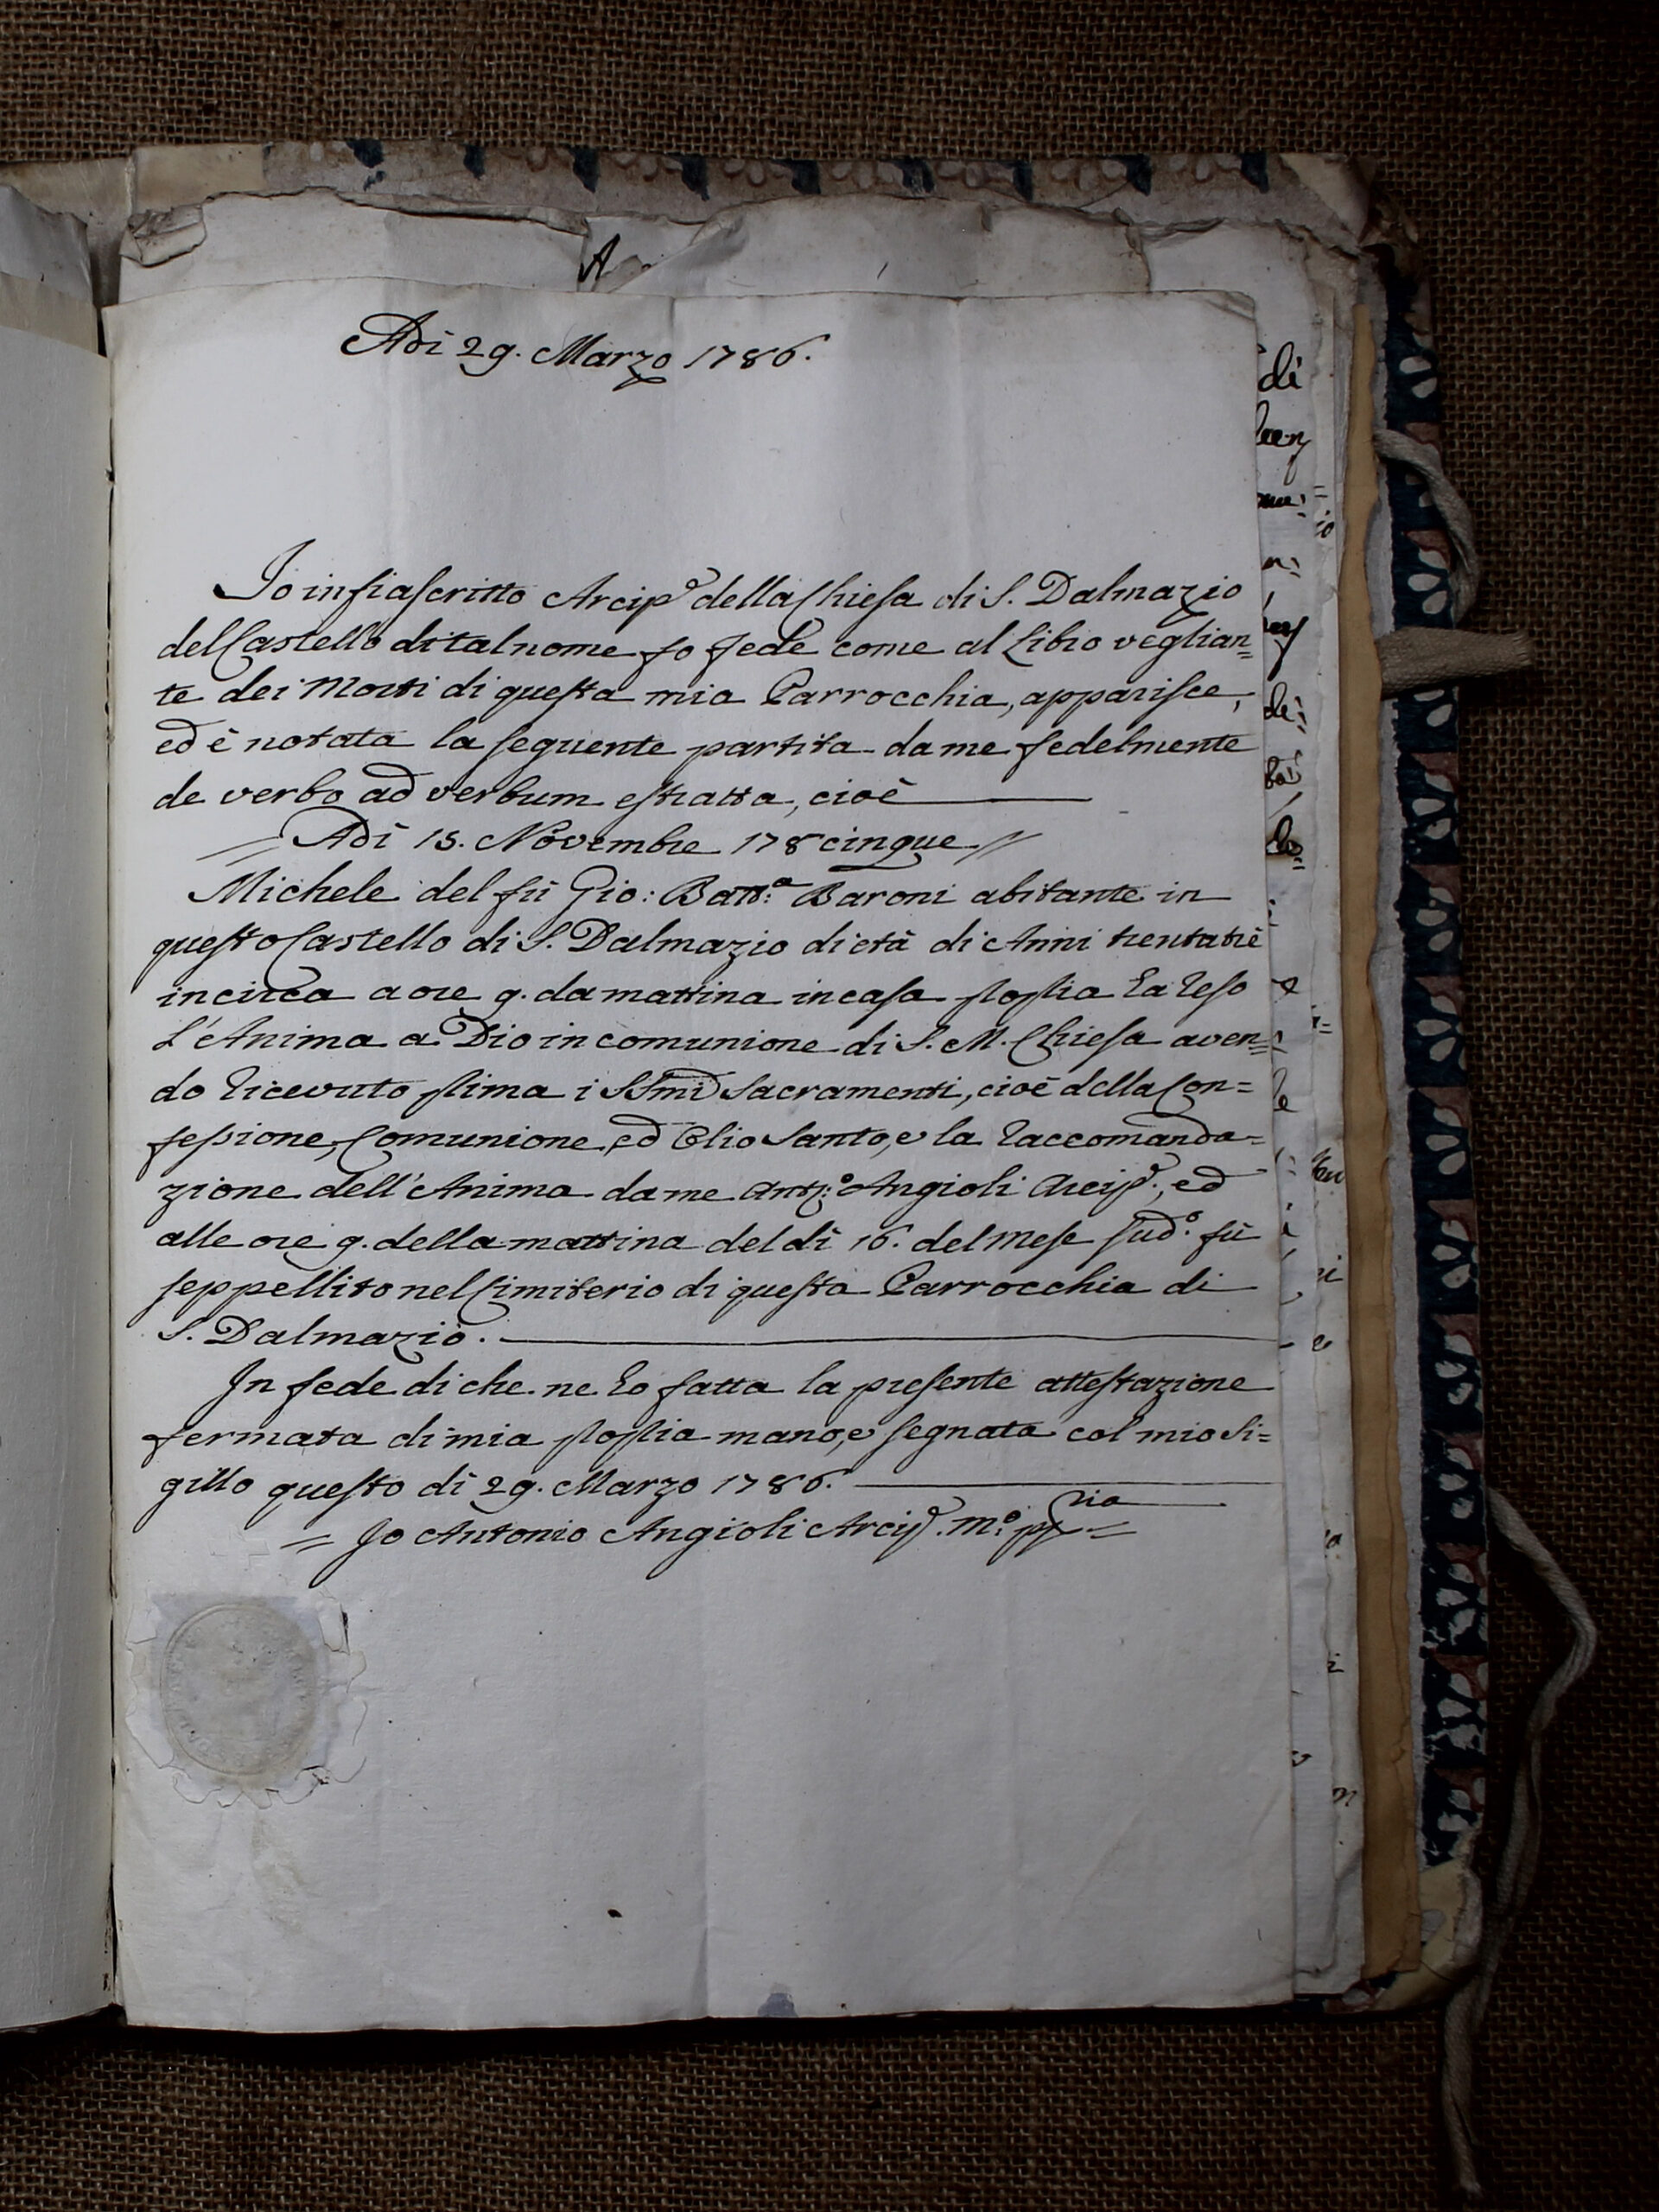 A
Adì 29. Marzo 1786.
Io infrascritto Arcip.e della Chiesa di S. Dalmazio
del Castello di tal nome fo fede come al Libro veglian=
te dei Morti di questa mia Parrocchia, apparisce,
ed è notata la seguente partita da me fedelmente
de verbo ad verbum estratta, cioè
= Adì 15. Novembre 178cinque //
Michele del fù Gio: Batt:a Baroni abitante in
questo Castello di S. Dalmazio di età di Anni trentatrè
in circa a ore 9. da mattina in casa propria ha reso
l'Anima a Dio in comunione di S. M. Chiesa aven=
do ricevuto prima i SSmi Sacramenti, cioè della Con=
fessione, Comunione, ed Olio Santo, e la raccomanda=
zione dell'Anima da me Ant:o Angioli Arcip.e, ed
alle ore 9. della mattina del dì 16. del Mese sud.o fù
seppellito nel Cimiterio di questa Parrocchia di
S. Dalmazio.
In fede di che ne ho fatta la presente attestazione
fermata di mia propria mano, e segnata col mio Si=
gillo questo dì 29. Marzo 1786.
= Io Antonio Angioli Arcip.e M:o pp.ria =